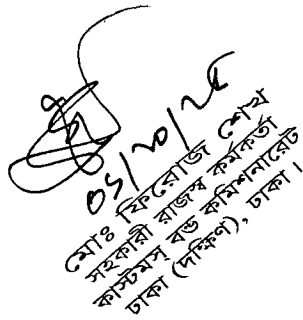 ০১/১০/২৫
মোঃ ফিরোজ শেখ
সহকারী রাজস্ব কর্মকর্তা
কাস্টমস্ বন্ড কমিশনারেট
ঢাকা (দক্ষিণ), ঢাকা।